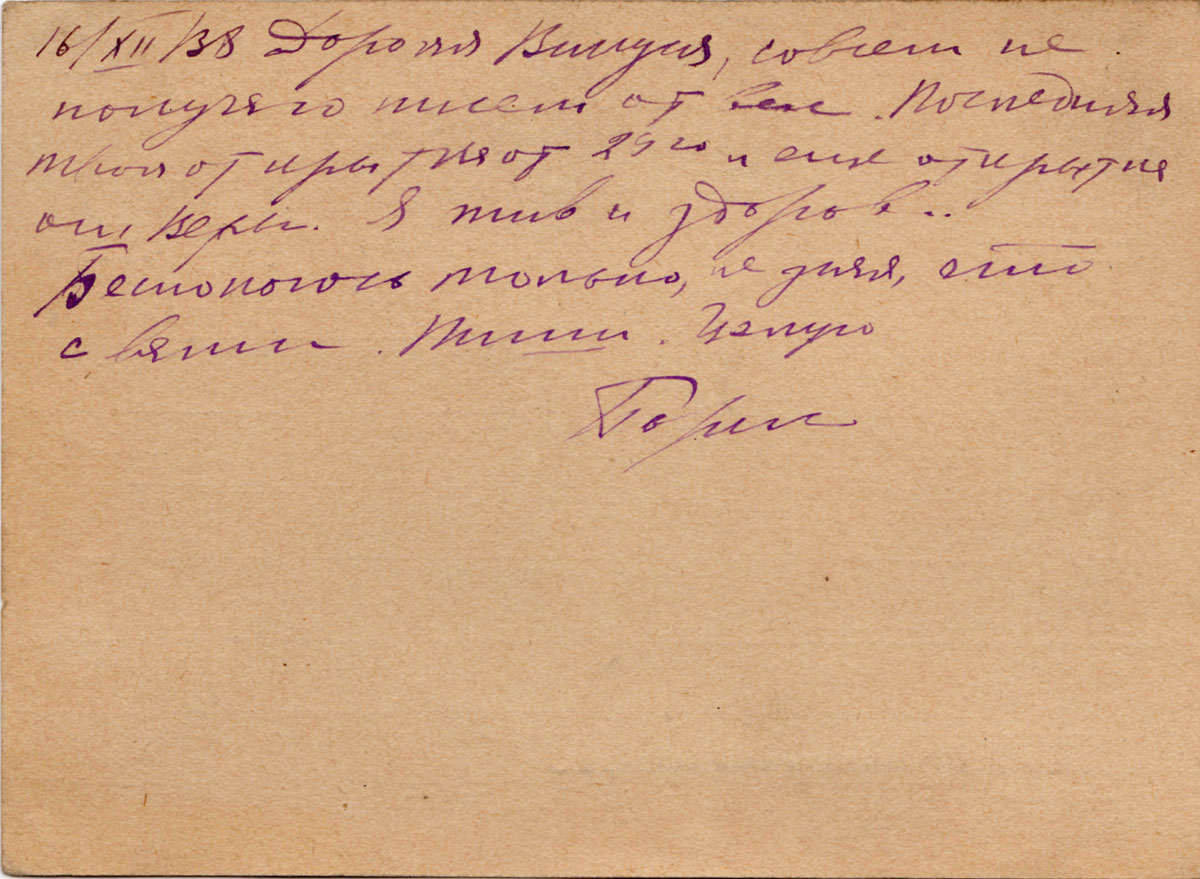 16/XII/38 Дорогая Вилуся, совсем не
получаю писем от вас. Последняя
твоя открытка от 29го и еще открытка
от Веры. Я жив и здоров..
Беспокоюсь только, не зная, что
с вами. Пиши. Целую
Борис